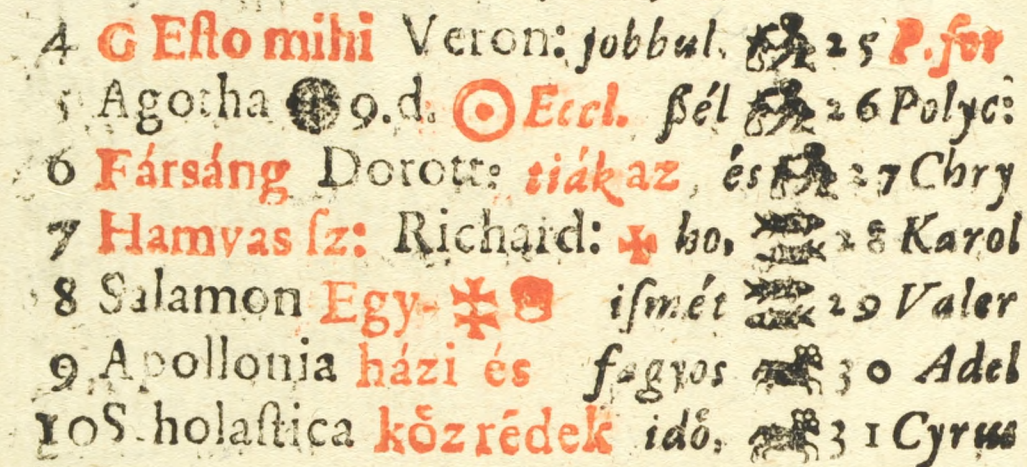 4 G Eſto mihi Veron: jobbul. 25 P. ſer
5 Agotha 9. d. Eccl. ßél 26 Polyc:
6 Fársáng Dorott: tiák az, és 27 Chry
7 Hamvas ſz: Richard: ho, 28 Karol
8 Salamon Egy- iſmét 29 Valer
9 Apollonia házi és fagyos 30 Adel
10 S.holaſtica kőzrédek idő, 31 Cyrus